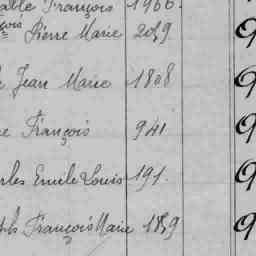 François 1966.
çois Pierre Marie 2049 9
Jean Marie 1808 9
François 941 9
rles Emile Louis 191. 9
François Marie 1859 9